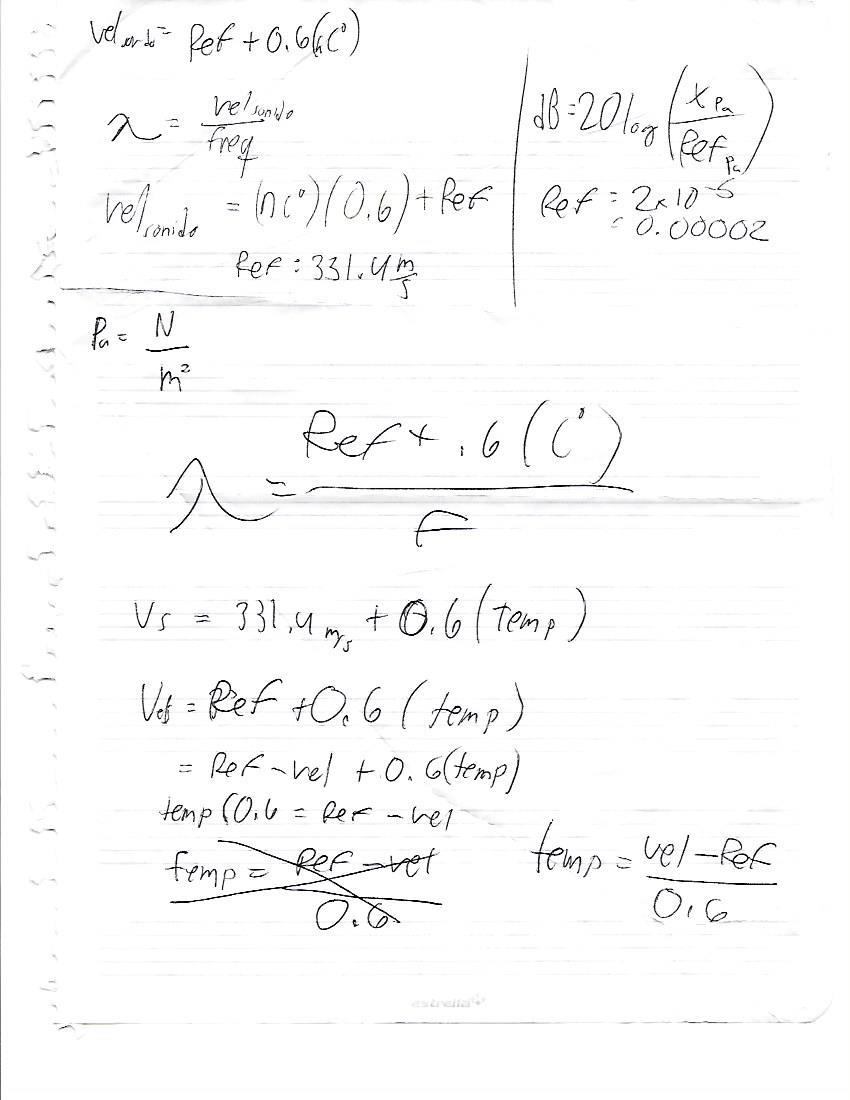 vel sonido = Ref + 0.6(nC°)
λ = vel sonido / freq
vel sonido = (nC°)(0.6) + Ref
Ref : 331.4 m/s
dB = 20 log (x Pa / Ref Pa)
Ref = 2x10^-5
= 0.00002
Pa = N / m²
λ = Ref + .6 (C°) / F
Vs = 331.4 m/s + 0.6 (temp)
= Ref + 0.6 (temp)
= Ref - vel + 0.6(temp)
temp (0.6 = Ref - vel
temp = Ref - vel / 0.6
temp = vel - Ref / 0.6
estrella